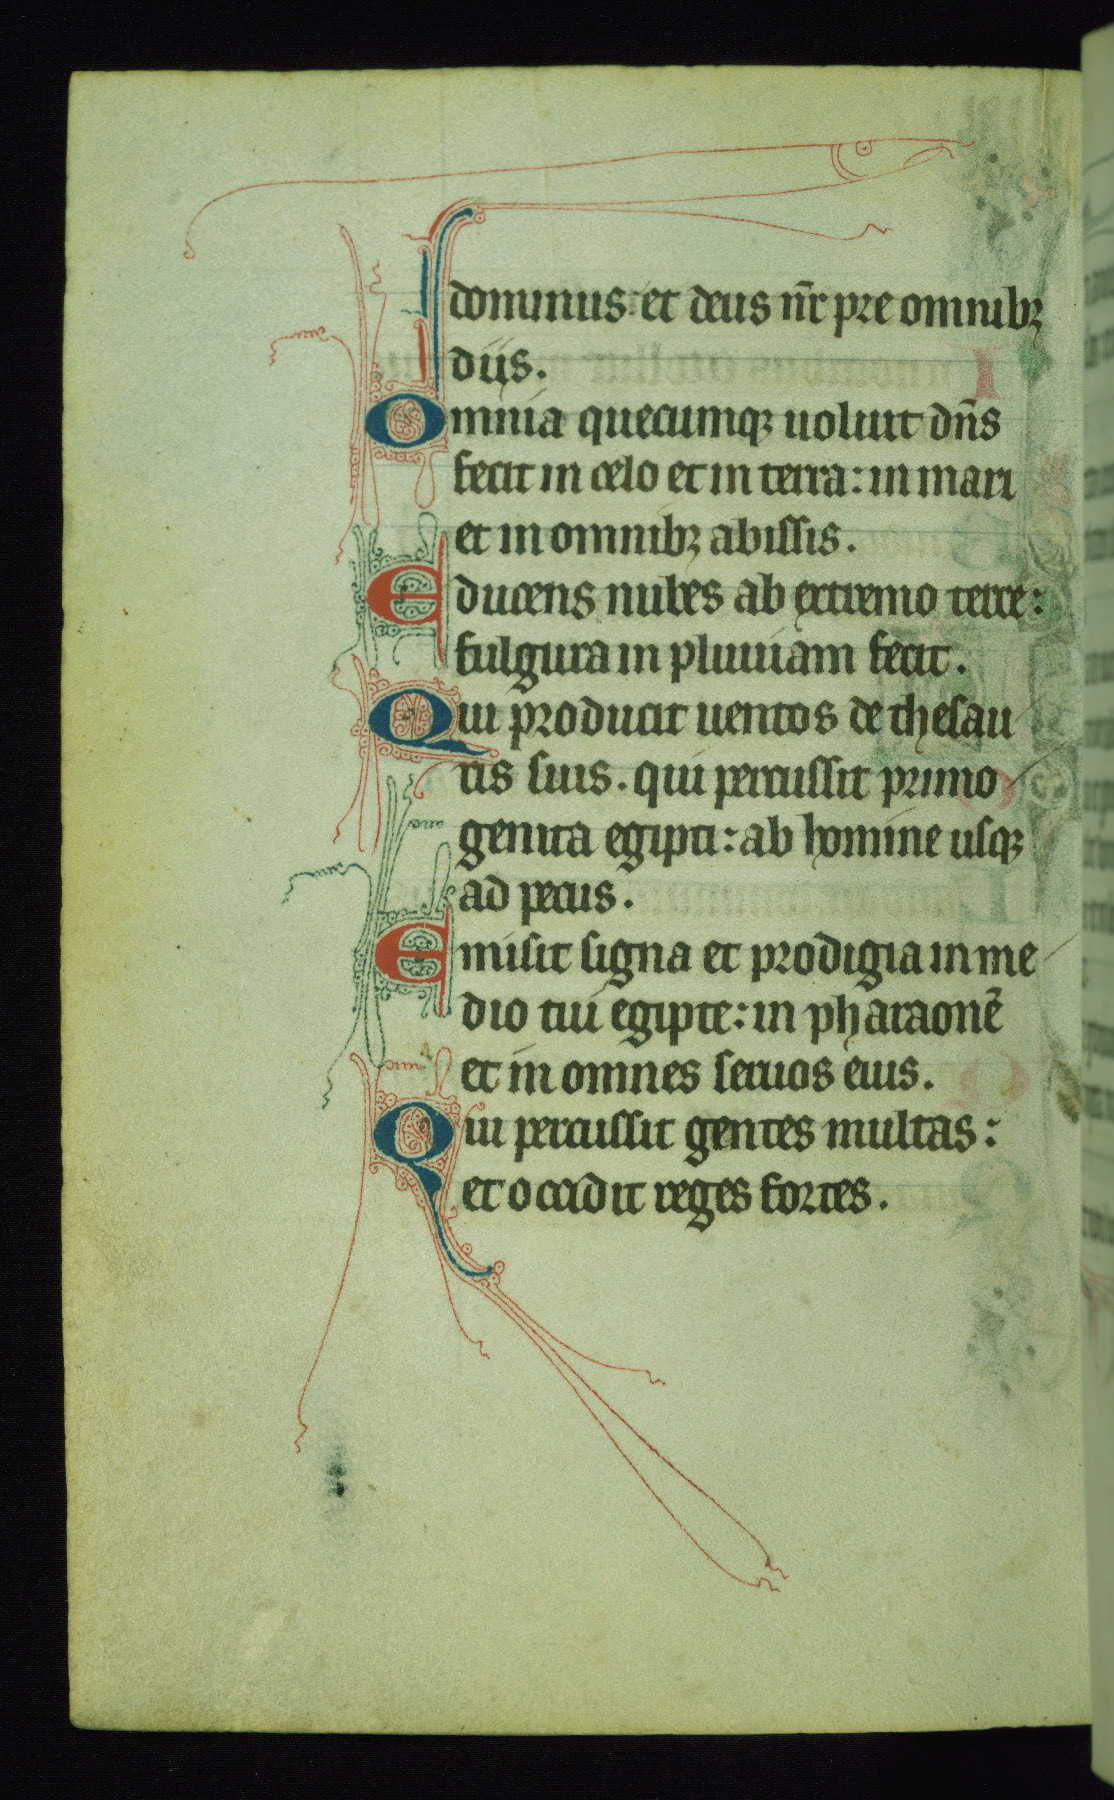 dominus et deus nr̄ pre omnibꝫ
diis.
Omnia quecumqꝫ uoluit dn̄s
fecit in celo et in terra: in mari
et in omnibꝫ abissis.
Educens nubes ab extremo terre:
fulgura in pluuiam fecit.
Qui producit uentos de thesau
ris suis. qui percussit primo
genita egipti: ab homine usqꝫ
ad pecus.
Emisit signa et prodigia in me
dio tui egipte: in pharaonē
et in omnes seruos eius.
Qui percussit gentes multas:
et occidit reges fortes.